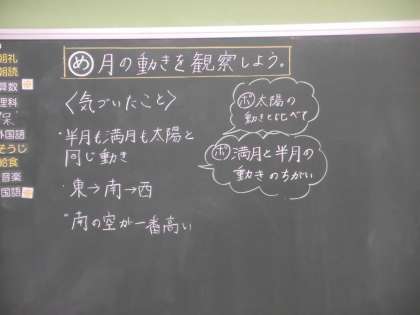 朝礼
朝読
算数
理科
外国語
そうじ
給食
音楽
国語
め 月の動きを観察しよう。
〈気づいたこと〉
・半月も満月も太陽と
同じ動き
・東→南→西
・南の空が一番高い
ポ 太陽の
動きと比べて
ポ 満月と半月の
動きのちがい